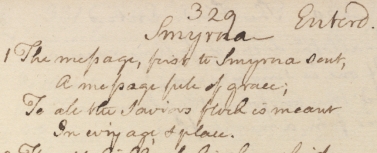 329
Smyrna Enterd.
1 The message, first to Smyrna sent,
A message full of grace;
To all the Saviors flock is meant
In evry age & place.